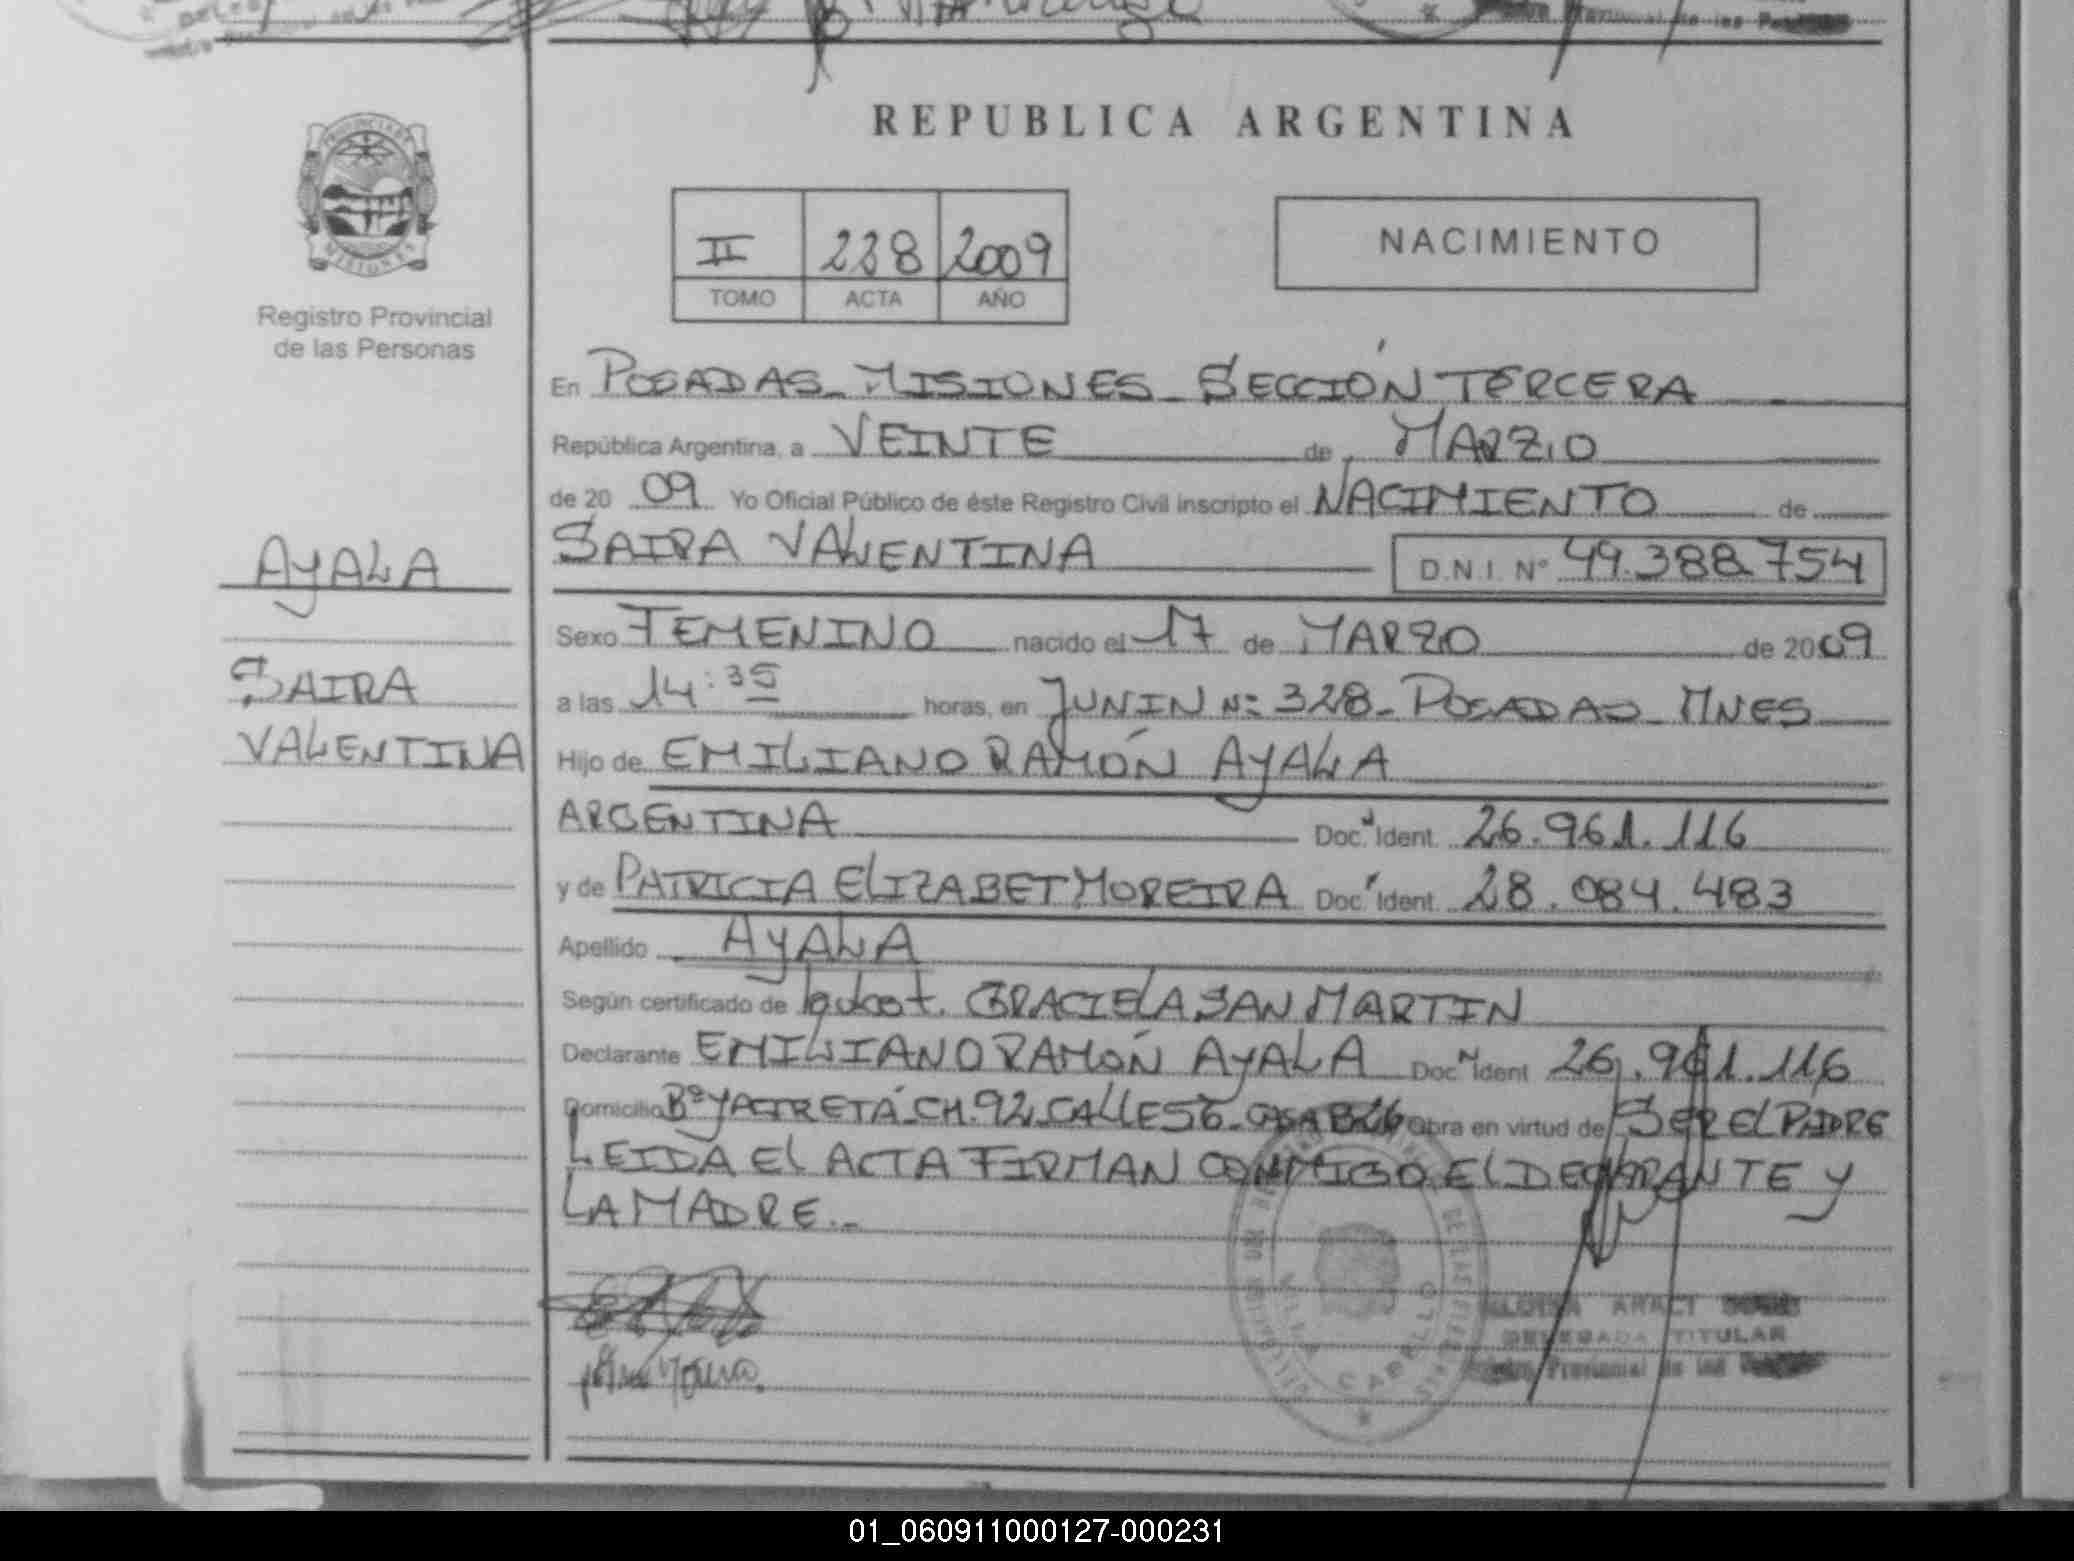 REPUBLICA ARGENTINA
PROVINCIA DE
MISIONES
Registro Provincial
de las Personas
NACIMIENTO
II 238 2009
TOMO ACTA AÑO
En POSADAS - MISIONES - SECCIÓN TERCERA
República Argentina, a VEINTE de MARZO
de 2009 Yo Oficial Público de éste Registro Civil inscripto el NACIMIENTO de
SAIRA VALENTINA D.N.I. Nº 49.388.754
AYALA
SAIRA
VALENTINA
Sexo FEMENINO nacido el 17 de MARZO de 2009
a las 14:35 horas, en JUNIN Nº 328 - POSADAS - MNES
Hijo de EMILIANO RAMÓN AYALA
ARGENTINA Doc. Ident. 26.961.116
y de PATRICIA ELIZABET MOREIRA Doc. Ident. 28.084.483
Apellido AYALA
Según certificado de GRACIELA SAN MARTIN
Declarante EMILIANO RAMÓN AYALA Doc. Ident 26.961.116
Domicilio Bº YACIRETÁ - CH. 92 - CALLE 56 - CASA B26 Obra en virtud de SER EL PADRE
LEIDA EL ACTA FIRMAN CONMIGO EL DECLARANTE Y
LA MADRE.-
VILLA CABELLO
ARACI
DELEGADA TITULAR
Provincial de las
01_060911000127-000231